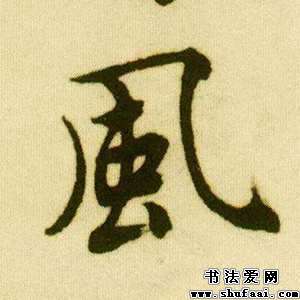 風
书法爱网
www.shufaai.com